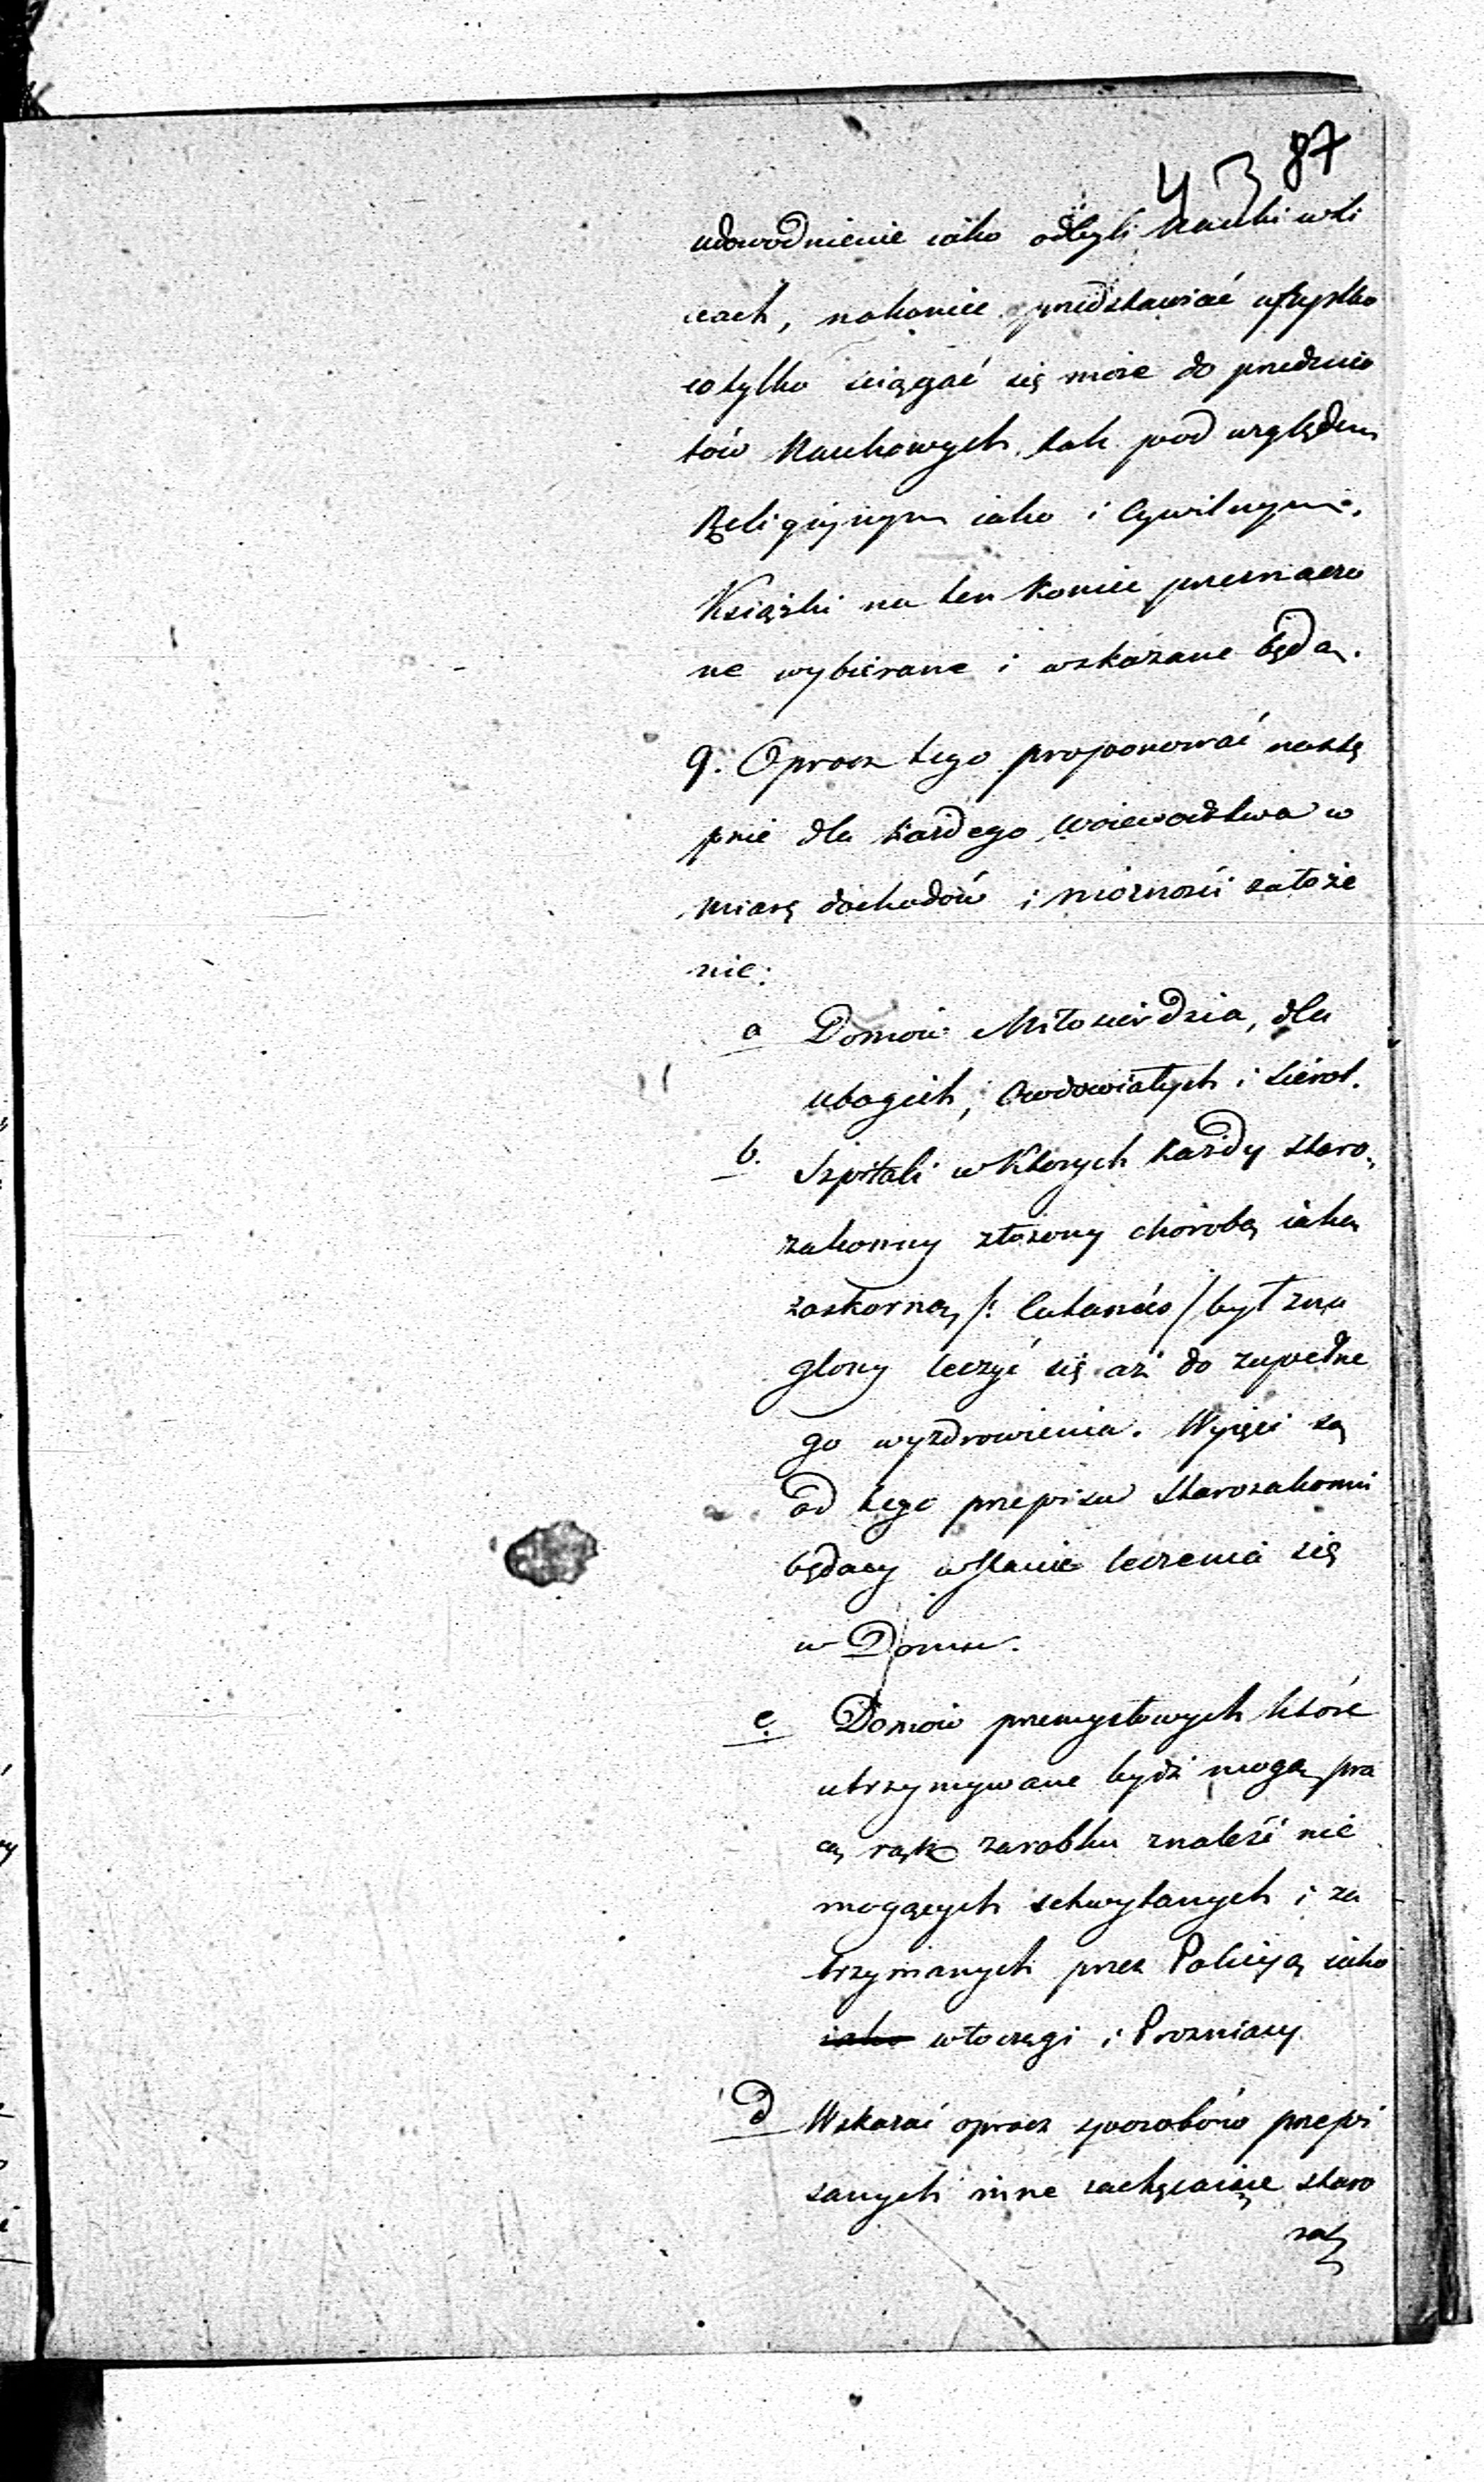 43 87
udowodnienie iako odbyli Nauki w li
ceach, nakoniec przedstawiać wszystko
co tylko ściągać się może do przedmio
tów Naukowych, tak pod względem
Religijnym iako i Cywilnym.
Książki na ten koniec przeznaczo
ne wybierane i wskazane będą.
9. Oprocz tego proponować nastę
pnie dla każdego Woiewodztwa w
miarę dochodów i możności założe
nie:
a Domów Miłosierdzia, dla
ubogich, Owdowiałych i sierot.
b. Szpitali w których każdy staro
zakonny złożony chorobą iaką
zaskorną /: Cutanées / był zna
glony leczyć się aż do zupełne
go wyzdrowienia. Wyięci są
od tego przepisu starozakonni
będący w stanie leczenia się
w Domu.
c. Domów przemysłowych które
utrzymywane bydź mogą pra
cą rąk zarobku znaleść nie
mogących schwytanych i za
trzymanych przez Policyą iako
iako włoczęgi i Prozniacy
d Wskazać oprocz sposobów przepi
sanych inne zachęcaiące staro
za